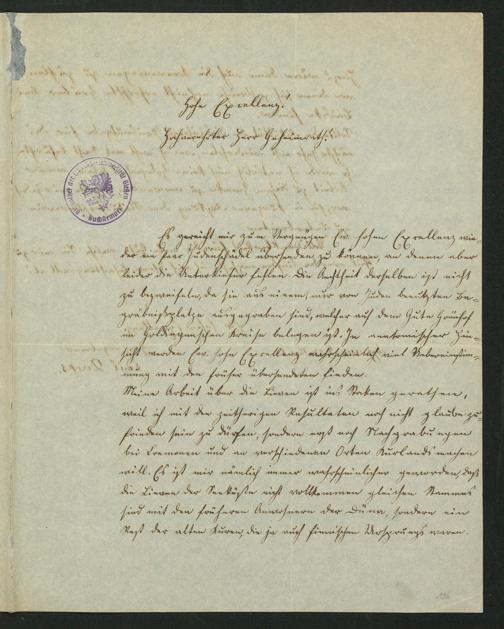 Hohe Excellenz!
Hochverehrter Herr Geheimrath!
Es gereicht mir zum Vergnügen Ew. hohen Excellenz wie-
der ein Paar Judenschädel übersenden zu können, an denen aber
leider die Unterkiefer fehlen. Die Aechtheit derselben ist nicht
zu bezweifeln, da sie aus einem, nur von Juden benützten Be-
gräbnißplatze ausgegraben sind, welcher auf dem Gute
im Goldingenschen Kreise belegen ist. In anatomischer Hin-
sicht werden Ew. hohe Excellenz wahrscheinlich viel Uebereinstim-
mung mit den früher übersendeten finden.
Meine Arbeit über die Liven ist ins Stocken gerathen,
weil ich mit den zeitherigen Resultaten noch nicht glaube zu-
frieden sein zu dürfen, sondern erst noch Nachgrabungen
bei und an verschiedenen Orten Kurlands machen
will. Es ist mir nämlich immer wahrscheinlicher geworden, daß
die Liven der Seeküste nicht vollkommen gleichen Stammes
sind mit den früheren Anwohnern der Düna, sondern ein
Rest der alten Kuren, die ja auch finnischen Ursprungs waren.